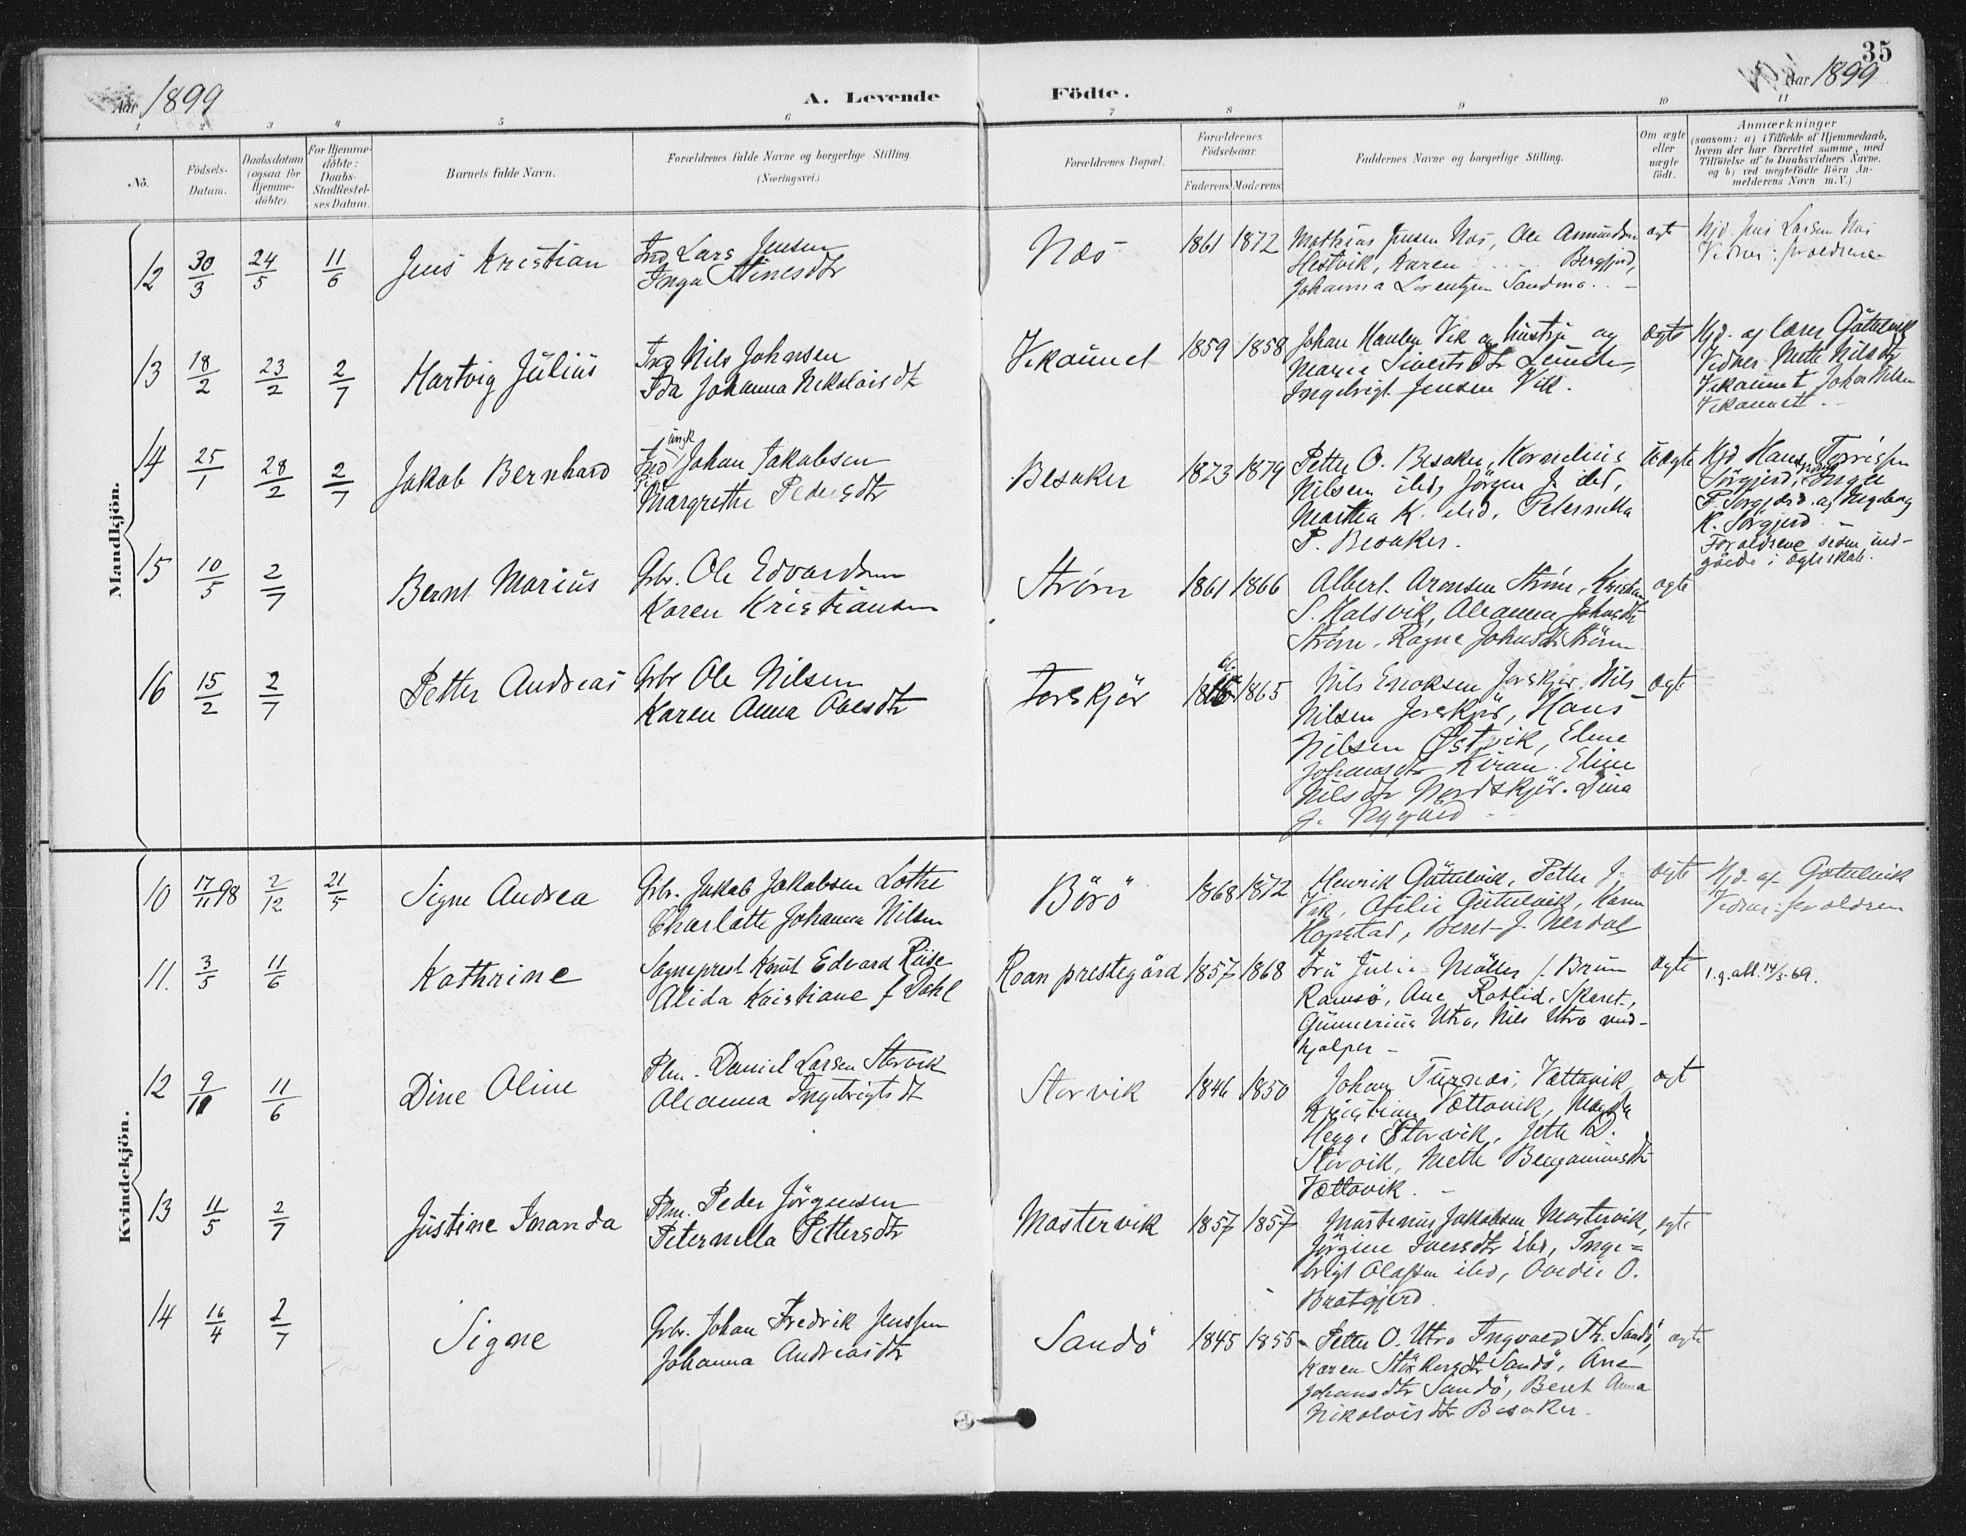 35
Aar 1899
A. Levende
Födte.
Aar 1899
1 2 3 4 5 6 7 8 9 10 11
No.
Födsels-
Datum.
Daabsdatum
(ogsaa for
Hjemme-
döbte).
For Hjemme-
döbte:
Daabs-
Stadfæstel-
ses Datum.
Barnets fulde Navn.
Forældrenes fulde Navne og borgerlige Stilling.
(Næringsvei.)
Forældrenes Bopæl.
Forældrenes
Födselsaar.
Faderens. Moderens.
Faddernes Navne og borgerlige Stilling.
Om ægte
eller
uægte
født.
Anmærkninger
(saasom: a) i Tilfælde af Hjemmedaab,
hvem der har forrettet samme, med
Tilföielse af to Daabsvidners Navne,
og b) ved uægtefödte Börn An-
melderens Navn m.V.)
Mandkjön.
12 30/3 24/5 11/6 Jens Kristian
Ind Lars Jensen
Inga Stinesdtr
Næs
1861 1872
Mathias Jensen Næs, Ole Amundsen
Hestvik, Karen Bergfjord,
Johanna Lorentzen Sandmo
ægte
Hjd. Jens Larsen Næs
Vidner: forældrene
13 18/2 23/2 2/7 Hartvig Julius
Ind Nils Johnsen
Ida Johanna Nikolaisdt
Vikaunet
1859 1858
Johan Vik og hustru og
Marie Sivertsdtr
Ingebrigt Jensen Vik.
ægte
Hjd. af lærer Götulvik
Vidner Mette Nilsdtr
Vikaunet Johan Nilsen
Vikaunet
14 25/1 28/2 2/7 Jakob Bernhard
Ind ungk Johan Jakobsen
Margrethe Pedersdtr
Besaker
1873 1879
Petter O. Besaker, Kornelius
Nilsen ibd, Jörgen J. ibd,
Martha K. ibd, Peternella
P. Besaker.
Uægte
Hjd Hans
Sörgjerd, Inger
P. Sorgjerd af Ingeborg
K. Sörgjerd
Forældrene siden ind-
gåede i ægteskab.
15 10/5 2/7 Bernt Marius
Gbr. Ole Edvardsen
Karen Kristiansen
Strøm
1861 1866
Albert Aronsen Strøm, Kristian
S. Halsvik, Aleanna Johnsdtr
Strøm, Ragne Johnsdtr Strøm
ægte
16 15/2 2/7 Petter Andreas
Gbr Ole Nilsen
Karen Anna Olesdtr
Terskjør
1865
Nils Eriksen Terskjør, Nils
Nilsen Terskjør, Hans
Nilsen Østvik, Eline
Johansdtr Kiran. Eline
Nilsdtr Nordskjør. Dina
J. Nygård
ægt
Kvindekjön.
10 17/11 98 2/12 21/5 Signe Andrea
Gbr. Jakob Jakobsen Lothe
Charlotte Johanna Nilsen
Börö
1868 1872
Henrik Götulvik, Petter J.
Vik, Ofilie Götulvik, Karen
Hopstad, Beret J. Nerdal
ægte
Hjd. af Götulvik
Vidner: forældrene
11. 3/5 11/6 Kathrine
Sogneprest Knut Edvard Riise
Alida Kristiane f. Dahl
Roan prestegård
1857 1868
Fru Julie Möller f. Bruun
Ramsö, Ane Rotlid, Skeret,
Gunnerina Utro, Nils Utro med-
hjælper
ægte
1.g. att. 14/3-69.
12 9/11 11/6 Dine Oline
Plm. Daniel Larsen Storvik
Oleanna Ingebrigtsdt
Storvik
1846 1850
Johan Turnæs, Vættavik,
Kristian Vættavik,
Hegge Storvik, Jette D.
Storvik, Mette Benjaminsdtr
Vættavik.
ægt
13 11/5 2/7 Justine Inanda
Plm. Peder Jörgensen
Peternella Pettersdtr
Mastervik
1857 1857
Martinus Jakobsen Mastervik,
Jörgine Iversdtr ibd, Inge=
brigt Olafsen ibd, Ovedie O.
Bratgjerd
ægte
14 16/4 2/7 Signe
Gbr. Johan Fredrik Jenssen
Johanna Andreasdtr
Sandö
1845 1855
Petter O. Utro Ingvald Th. Sandö,
Karen Sandö, Ane
Johansdtr Sandö, Beret Anna
Nikolaisdtr Besaker.
ægte